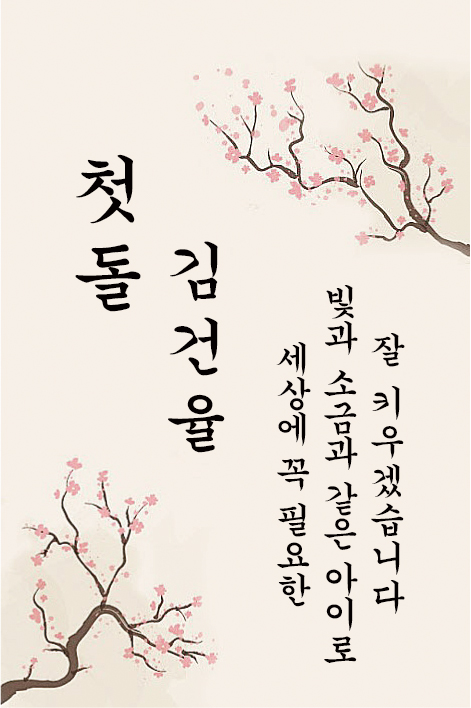 첫돌
김건율
세상에 꼭 필요한
빛과 소금과 같은 아이로
잘 키우겠습니다